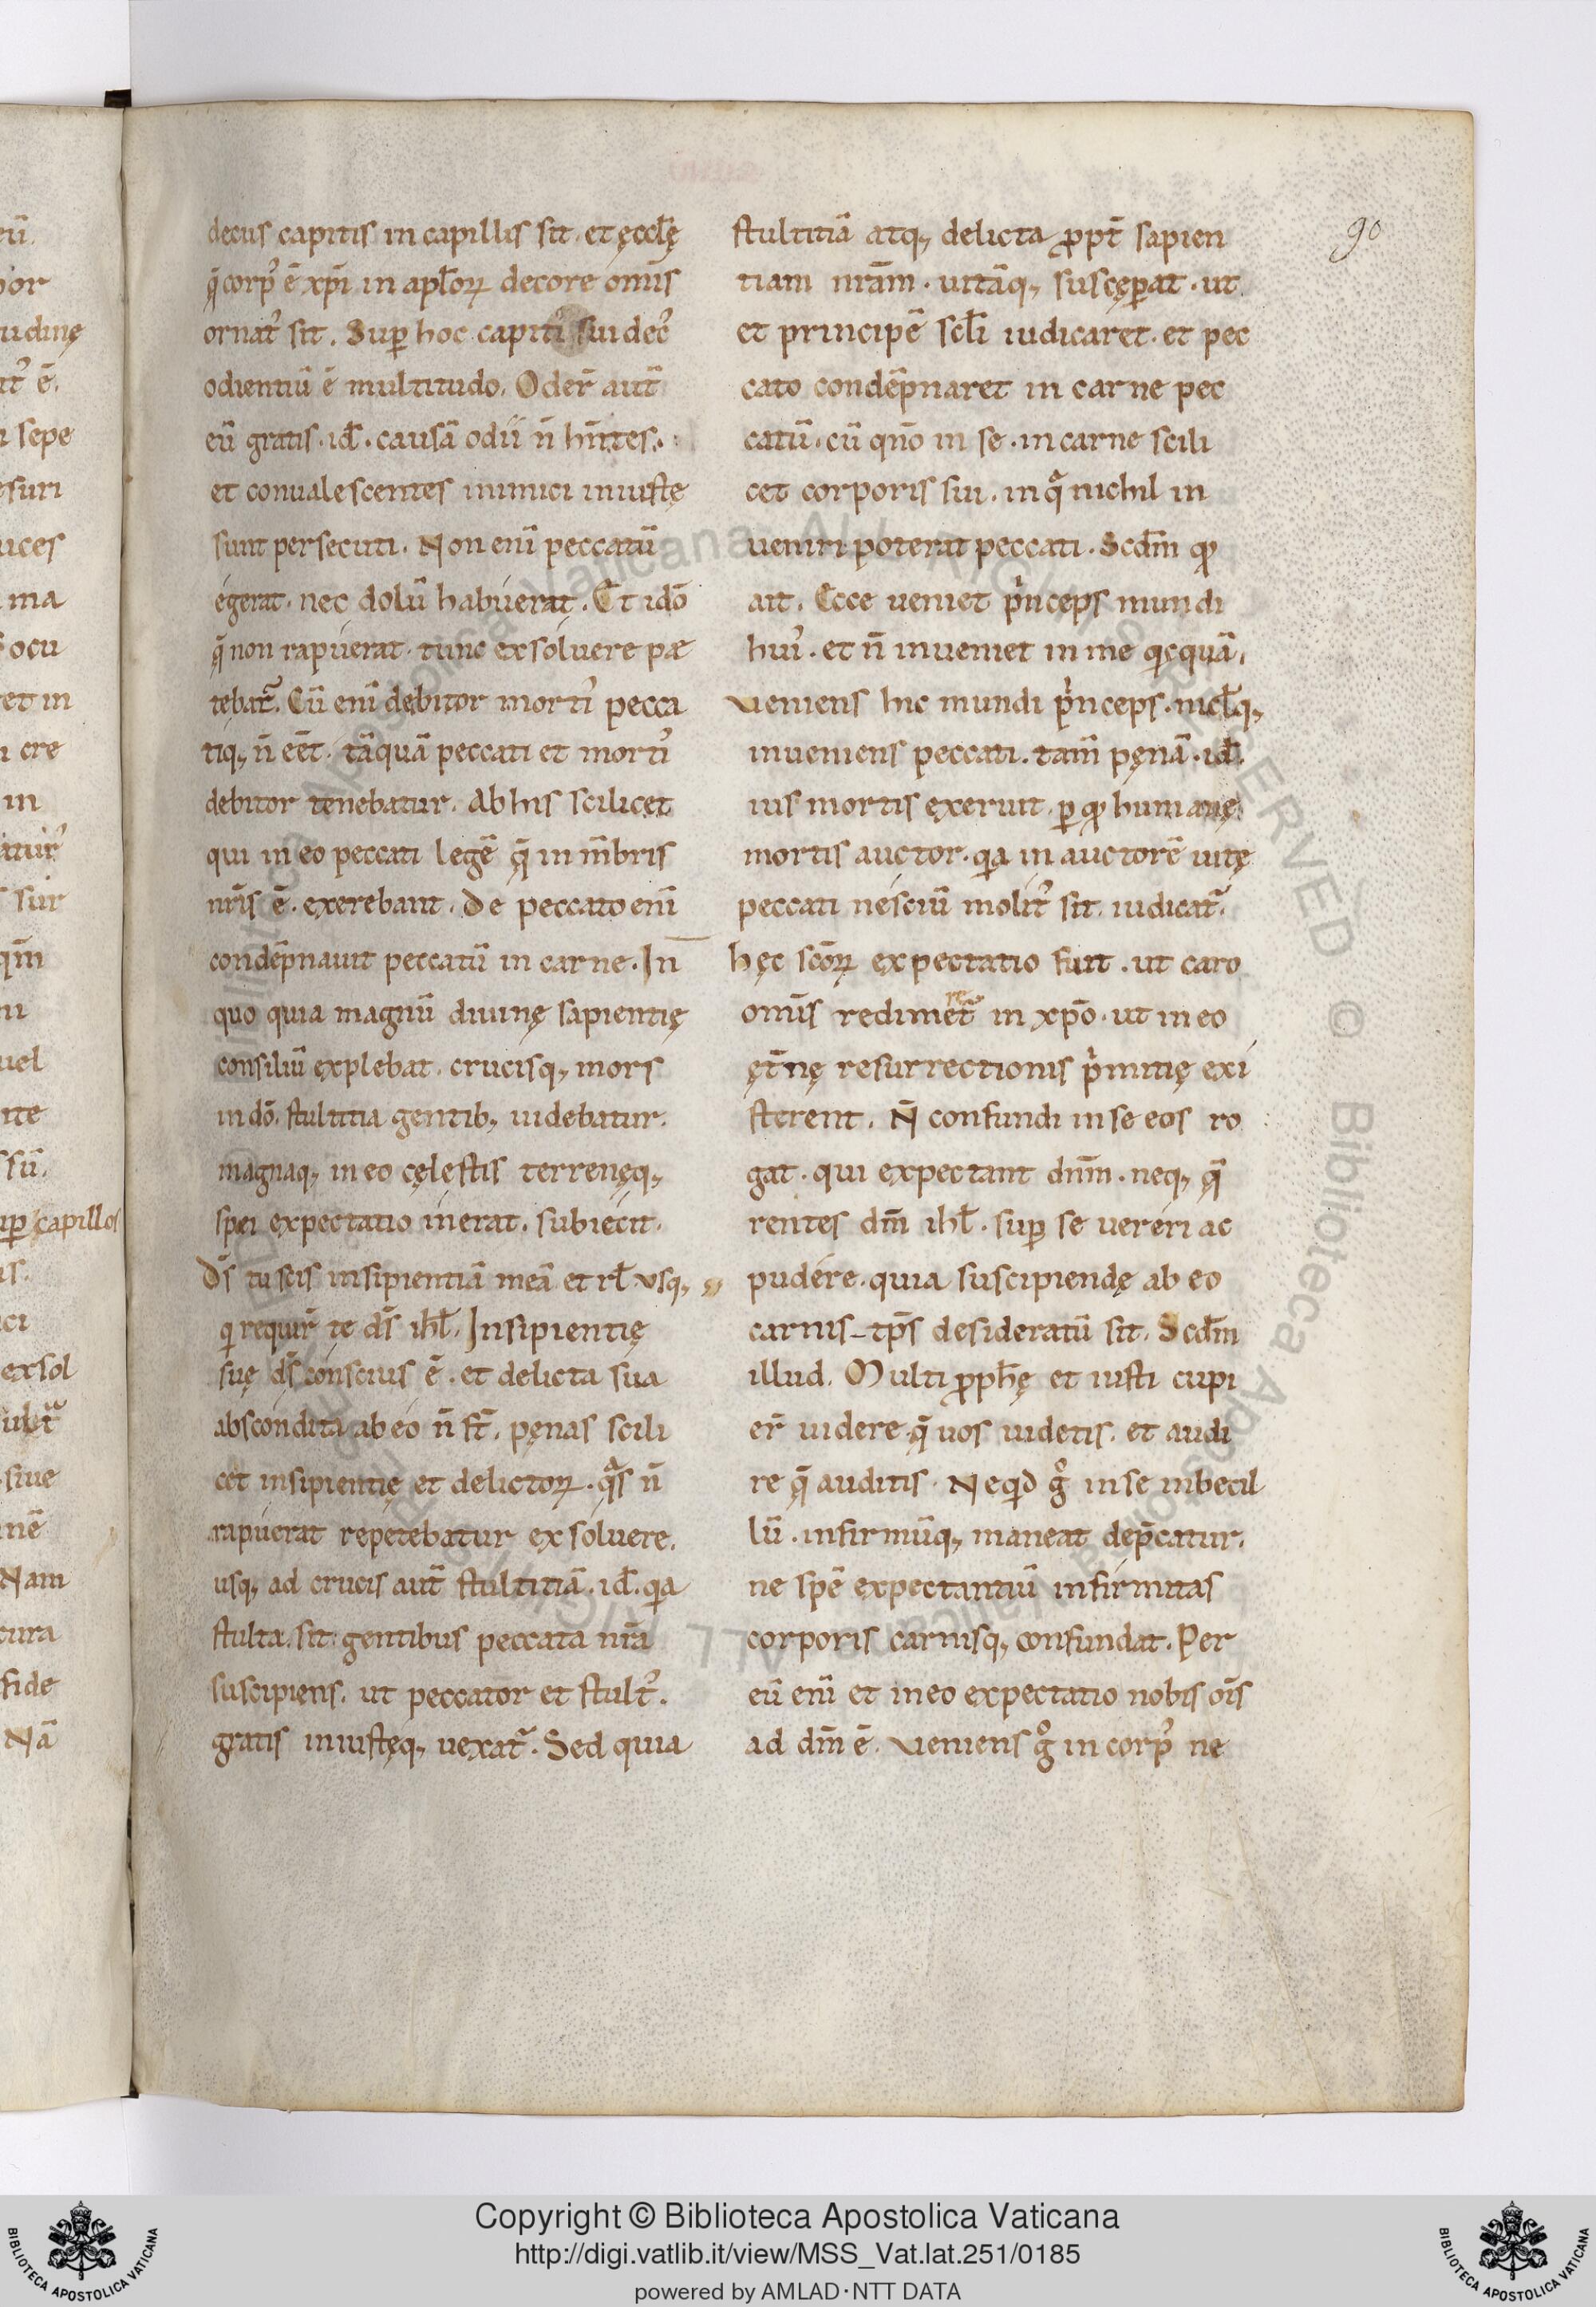 decus capitis in capillis sit. et ęccłę
q̄ corp᾽ ē xp̄i in apłoꝝ decore om̄is
ornat᾽ sit. Suꝑ hoc capiti᾽ sui dec᾽
odientiū ē multitudo. Oder̄ aut̄
eū gratis. id̄. causā odii n̄ hn̄tes.
et conualescentes inimici iniustę
sunt persecuti. Non enī peccatū
egerat. nec dolū habuerat. Et idō
q̄ non rapuerat. tunc exsoluere pæ
tebat᷑. Cū enī debitor morti᾽ pecca
tiq; n̄ eēt. tāquā peccati et morti᾽
debitor tenebatur. Ab his scilicet
qui in eo peccati legē q̄ in m̄bris
nr̄is ē. exerebant. De peccato enī
condēpnauit peccatū in carne. In
quo quia magnū diuinę sapientię
consiliū explebat. crucisq; mors
in dō. stultitia gentib; uidebatur.
magnaq; in eo cęlestis terrenęq;
spei expectatio inerat. subiecit.
Ds̄ tu scis insipientiā meā et rł vsq;
q̇ requir̄ te ds̄ ihł. Insipientię
suę ds̄ conscius ē. et delicta sua
abscondita ab eo n̄ st̄. pęnas scili
cet insipientię et delictoꝝ. qᷓs n̄
rapuerat repetebatur exsoluere.
usq; ad crucis aut̄ stultitiā. id̄. qᷓa
stulta sit gentibus peccata nr̄a
suscipiens. ut peccator et stult᾽.
gratis iniustęq; uexat᷑. Sed quia
stultitiā atq; delicta ꝓpt̄ sapien
tiam nr̄am. uitāq; suscęꝑat. ut
et principē scłi iudicaret. et pec
cato condēpnaret in carne pec
catū. cū qn̄o in se. in carne scili
cet corporis sui. in qᷓ nichil in
ueniri poterat peccati. Scdm̄ qͦd
ait. Ecce ueniet pͥnceps mundi
hui᾽. et n̄ inueniet in me qͥcquā.
Veniens hic mundi pͥnceps. nichłq;
inueniens peccati. tam̄ pęnā. id̄.
ius mortis exeruit. ꝑ qͦd humanę
mortis auctor. qᷓa in auctorē uitę
peccati nesciū molit᾽ sit. iudicat᷑.
hęc scōꝝ expectatio fuit. ut caro
om̄is redimeret᷑ in xp̄o. ut in eo
ęt̄nę resurrectionis pͥmitię exi
sterent. N̄ confundi in se eos ro
gat. qui expectant dnm̄. neq; quę
rentes dm̄ ihł. suꝑ se uereri ac
pudere. quia suscipiendę ab eo
carnis tp̄s desideratū sit. Scdm̄
illud. Multi ꝓphę et iusti cupi
er̄ uidere q̄ uos uidetis. et audi
re q̄ auditis. Ne qͥd gͦ in se inbecil
lū. infirmūq; maneat dep̄catur.
ne spē expectantiū infirmitas
corporis carnisq; confundat. Per
eū enī et in eo expectatio nobis oīs
ad dm̄ ē. Veniens gͦ in corp᾽ ne
90
eū.
por
udinę
it᾽ ē.
sepe
suri
uces
ma
ocu
et in
cre
in
sur
qm̄
uel
ite
suꝑ capillos
ci
exsol
siue
nē
Nam
cura
fide
Nā
Copyright © Biblioteca Apostolica Vaticana
http://digi.vatlib.it/view/MSS_Vat.lat.251/0185
powered by AMLAD·NTT DATA
BIBLIOTECA APOSTOLICA VATICANA
BIBLIOTECA APOSTOLICA VATICANA